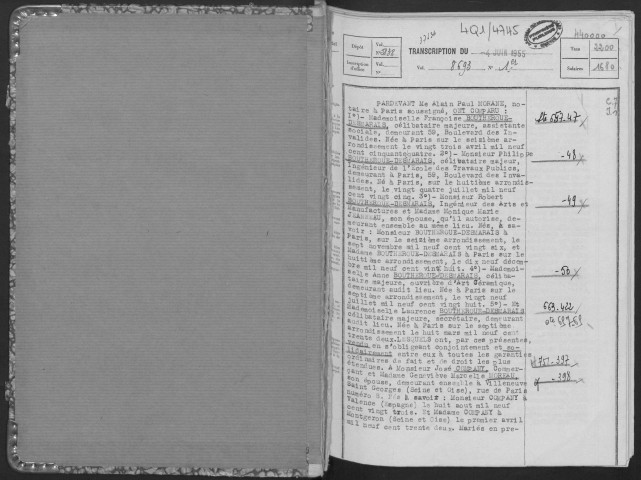 4Q1/4745
Dépôt
Vol.
TRANSCRIPTION DU 4 JUIN 1955
Inscription d'office
Vol.
Vol. 8693 N°
Taxe
Salaires
PARDEVANT Me Alain Paul MORANE, no-
taire à Paris soussigné, ONT COMPARU :
1°)- Mademoiselle Françoise BOUTHEROUE-
DESMARAIS, célibataire majeure, assistante
sociale, demeurant 59, Boulevard des In-
valides. Née à Paris sur le seizième ar-
rondissement le vingt trois avril mil neuf
cent 2°)- Monsieur Philippe
BOUTHEROUE-DESMARAIS, célibataire majeur,
Ingénieur de l'Ecole des Travaux Publics,
demeurant à Paris, 59, Boulevard des Inva-
lides. Né à Paris, sur le huitième arrondis-
sement, le vingt quatre juillet mil neuf
cent vingt cinq. 3°)- Monsieur Robert
BOUTHEROUE-DESMARAIS, Ingénieur des Arts et
Manufactures et Madame Monique Marie
son épouse, qu'il autorise, de-
meurant ensemble au même lieu. Nés, à sa-
voir : Monsieur BOUTHEROUE-DESMARAIS à
Paris, sur le seizième arrondissement, le
sept novembre mil neuf cent vingt six, et
Madame BOUTHEROUE-DESMARAIS à Paris sur le
huitième arrondissement, le dix neuf décem-
bre mil neuf cent vingt huit. 4°)- Mademoi-
selle Anne BOUTHEROUE-DESMARAIS, céliba-
taire majeure, ouvrière d'Art Céramique,
demeurant audit lieu. Née à Paris sur le
septième arrondissement, le vingt neuf
juillet mil neuf cent vingt huit. 5°)- Et
Mademoiselle Laurence BOUTHEROUE-DESMARAIS
célibataire majeure, secrétaire, demeurant
audit lieu. Née à Paris sur le septième
arrondissement le huit mars mil neuf cent
trente deux. LESQUELS ont, par ces présentes,
vendu en s'obligeant conjointement et so-
lidairement entre eux à toutes les garanties
ordinaires de fait et de droit les plus
étendues. A Monsieur José COMPANY, Commer-
çant et Madame Geneviève Marcelle MOREAU,
son épouse, demeurant ensemble à Villeneuve
Saint Georges (Seine et Oise), rue de Paris
numéro Nés à savoir : Monsieur COMPANY à
Valence (Espagne) le huit aout mil neuf
cent vingt trois. Et Madame COMPANY à
Montgeron (Seine et Oise) le premier avril
mil neuf cent trente deux. Mariés en pre-
-48
-49
-50